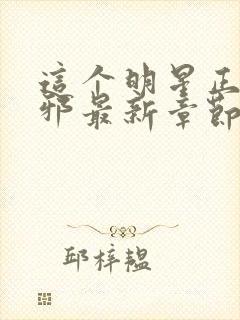 這个明星正
邪最新章節
邱梓韞